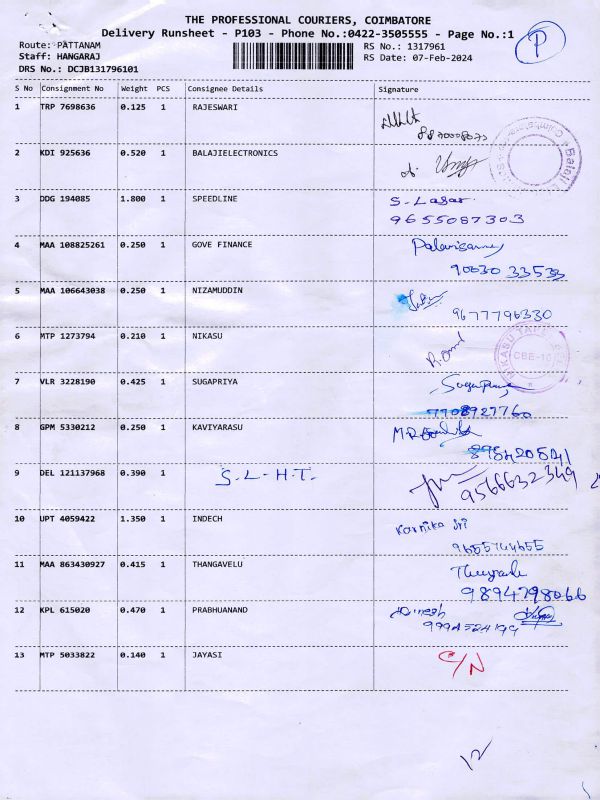 THE PROFESSIONAL COURIERS, COIMBATORE
Delivery Runsheet - P103 - Phone No.:0422-3505555 - Page No.:1
P
Route: PATTANAM
RS No.: 1317961
Staff: HANGARAJ
RS Date: 07-Feb-2024
DRS No.: DCJB131796101
S No Consignment No Weight PCS Consignee Details Signature
1 TRP 7698636 0.125 1 RAJESWARI
2 KDI 925636 0.520 1 BALAJIELECTRONICS
3 DDG 194085 1.800 1 SPEEDLINE S-Lasar
9655087303
4 MAA 108825261 0.250 1 GOVE FINANCE Palanisamy
90030 33533
5 MAA 106643038 0.250 1 NIZAMUDDIN
9677796330
6 MTP 1273794 0.210 1 NIKASU
NIKASU CBE-16
7 VLR 3228190 0.425 1 SUGAPRIYA Sugapriya
7708927760
8 GPM 5330212 0.250 1 KAVIYARASU
9 DEL 121137968 0.390 1 S.L.H.T.
9566632349
10 UPT 4059422 1.350 1 INDECH Karnika sri
9655744655
11 MAA 863430927 0.415 1 THANGAVELU
9894798066
12 KPL 615020 0.470 1 PRABHUANAND Dinesh
13 MTP 5033822 0.140 1 JAYASI C/N
12